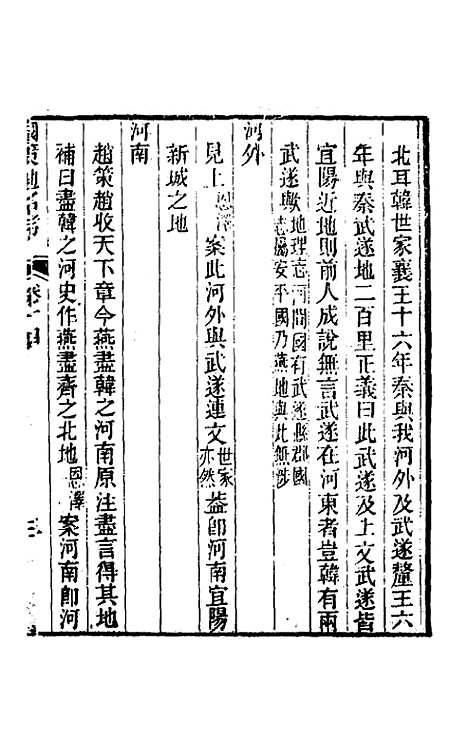 北耳韓世家襄王十六年秦與我河外及武遂釐王六
年與秦武遂地二百里正義曰此武遂及上文武遂皆
宜陽近地則前人成說無言武遂在河東者豈韓有兩
武遂歟地理志河間國有武遂縣郡國志屬安平國乃燕地與此無涉
河外
見上恩澤案此河外與武遂連文世家亦然葢卽河南宜陽
新城之地
河南
趙策趙收天下章今燕盡韓之河南原注盡言得其地
補曰盡韓之河史作燕盡齊之北地恩澤案河南卽河
國策地名考